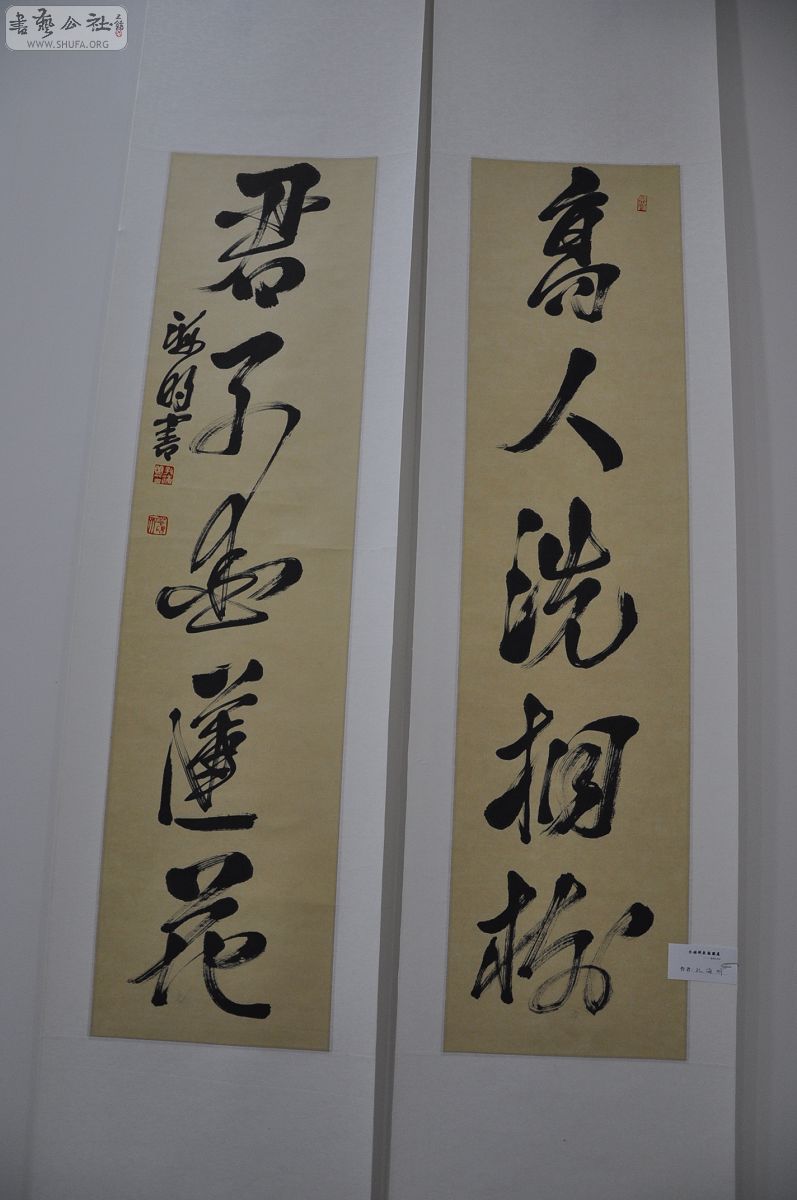 書藝公社
WWW.SHUFA.ORG
高人洗桐樹
君子愛蓮花
海明書